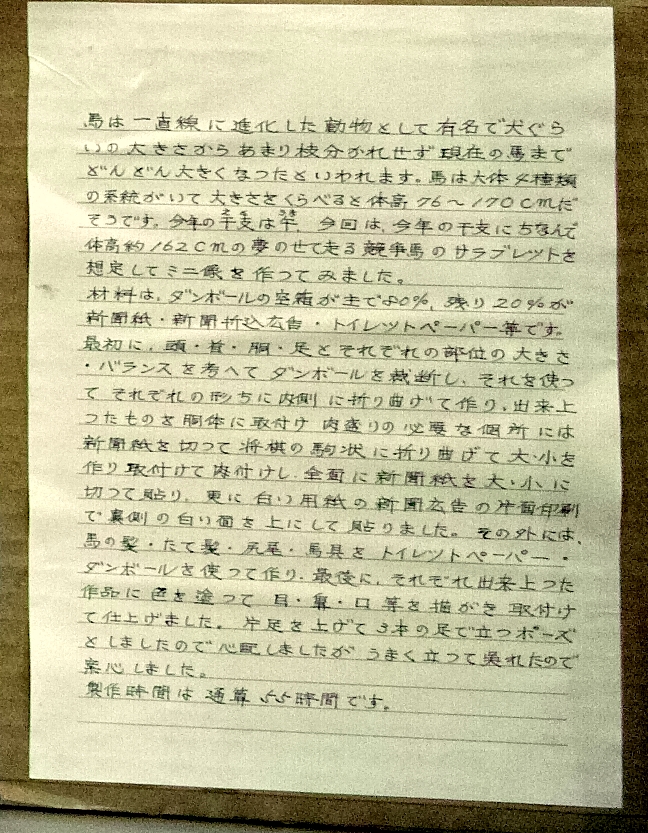 馬は一直線に進化した動物として有名で犬ぐら
いの大きさからあまり枝分かれせず現在の馬まで
どんどん大きくなったといわれます。馬は大体4種類
の系統がいて大きさをくらべると体高76～170cmだ
そうです。今年の干支は午、今回は、今年の干支にちなんで
体高約162cmの夢のせて走る競争馬のサラブレットを
想定してミニ像を作ってみました。
材料は、ダンボールの空箱が主で80%、残り20%が
新聞紙・新聞折込広告・トイレットペーパー等です。
最初に、頭・首・胴・足とそれぞれの部位の大きさ
・バランスを考へてダンボールを裁断し、それを使っ
てそれぞれの形ちに内側に折り曲げて作り、出来上
ったものを胴体に取付け肉盛りの必要な個所には
新聞紙を切って将棋の駒状に折り曲げて大・小を
作り取付けて肉付けし、全面に新聞紙を大・小に
切って貼り、更に白い用紙の新聞広告の片面印刷
で裏側の白い面を上にして貼りました。その外には、
馬の髪・たて髪・尻尾・馬具をトイレットペーパー・
ダンボールを使って作り、最後に、それぞれ出来上った
作品に色を塗って目・鼻・口等を描がき取付け
て仕上げました。片足を上げて3本の足で立つポーズ
としましたので心配しましたがうまく立って呉れたので
安心しました。
製作時間は通算55時間です。